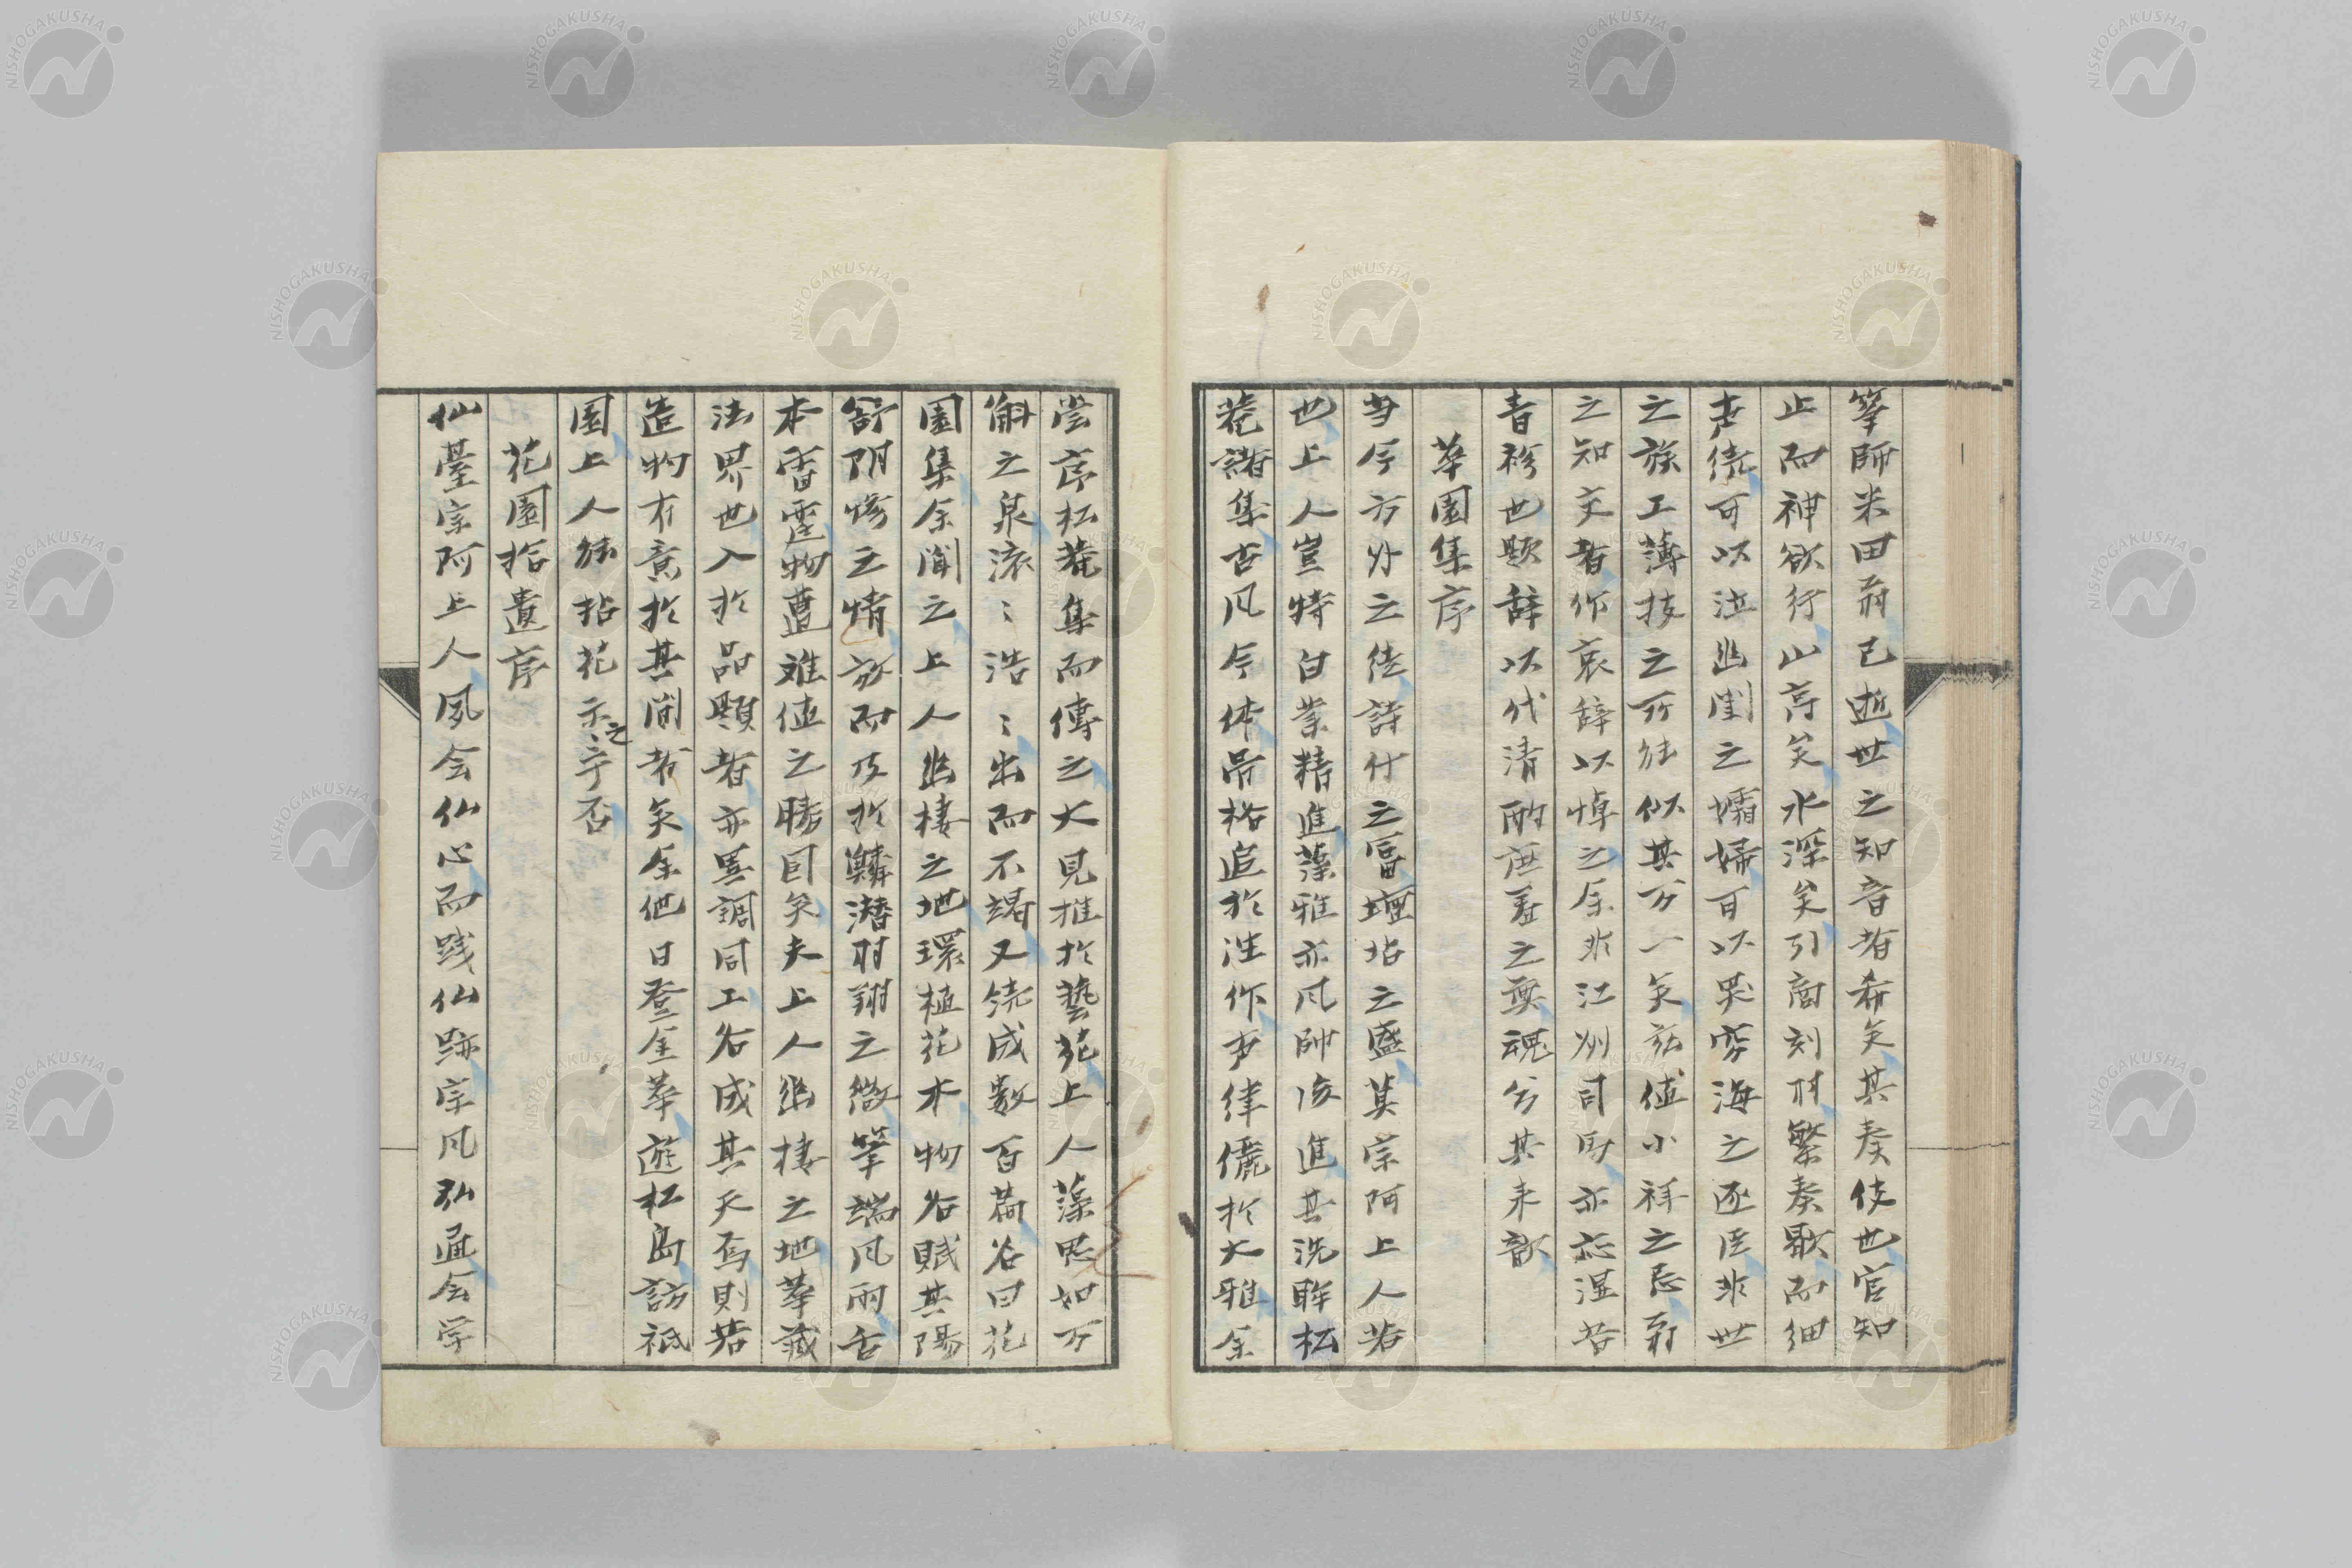 箏師米田翁已逝世之知音者希矣其奏伎也官知
止而神欲行山高矣水深矣引商刻羽繁奏歇而細
声繞可以泣幽閨之孀婦可以哭窮海之逐臣非世
之族工薄技之所能似其万一矣茲値小祥之忌新
之知交者作哀辞以悼之余非江州司馬亦忘湿若
青衫也題辞以代清酌庶羞之奠魂兮其来歆
華園集序
当今方外之徒詩什之富壇坫之盛莫宗阿上人若
也上人豈特白業精進藻雅亦風帥後進其洗眸松
菴諸集古風今体品格追於注作声律儷於大雅余
嘗序松菴集而傳之大見推於藝苑上人藻思如万
斛之泉滾〻浩〻出而不竭又繞成数百篇名曰花
園集余聞之上人幽棲之地環植花木物各賦其陽
舒陰慘之情放而及於鱗潜羽翔之微筆端風雨舌
本雷霆物遭難値之勝囿矣夫上人幽棲之地華蔵
法界也入於品題者亦異調同工各成其天焉則若
造物有意於其間者矣余他日登金華遊松島訪祇
園上人能拈花示之示之乎否
花園拾遺序
仙臺宗阿上人夙会仙心而践仙跡宗風弘通会学